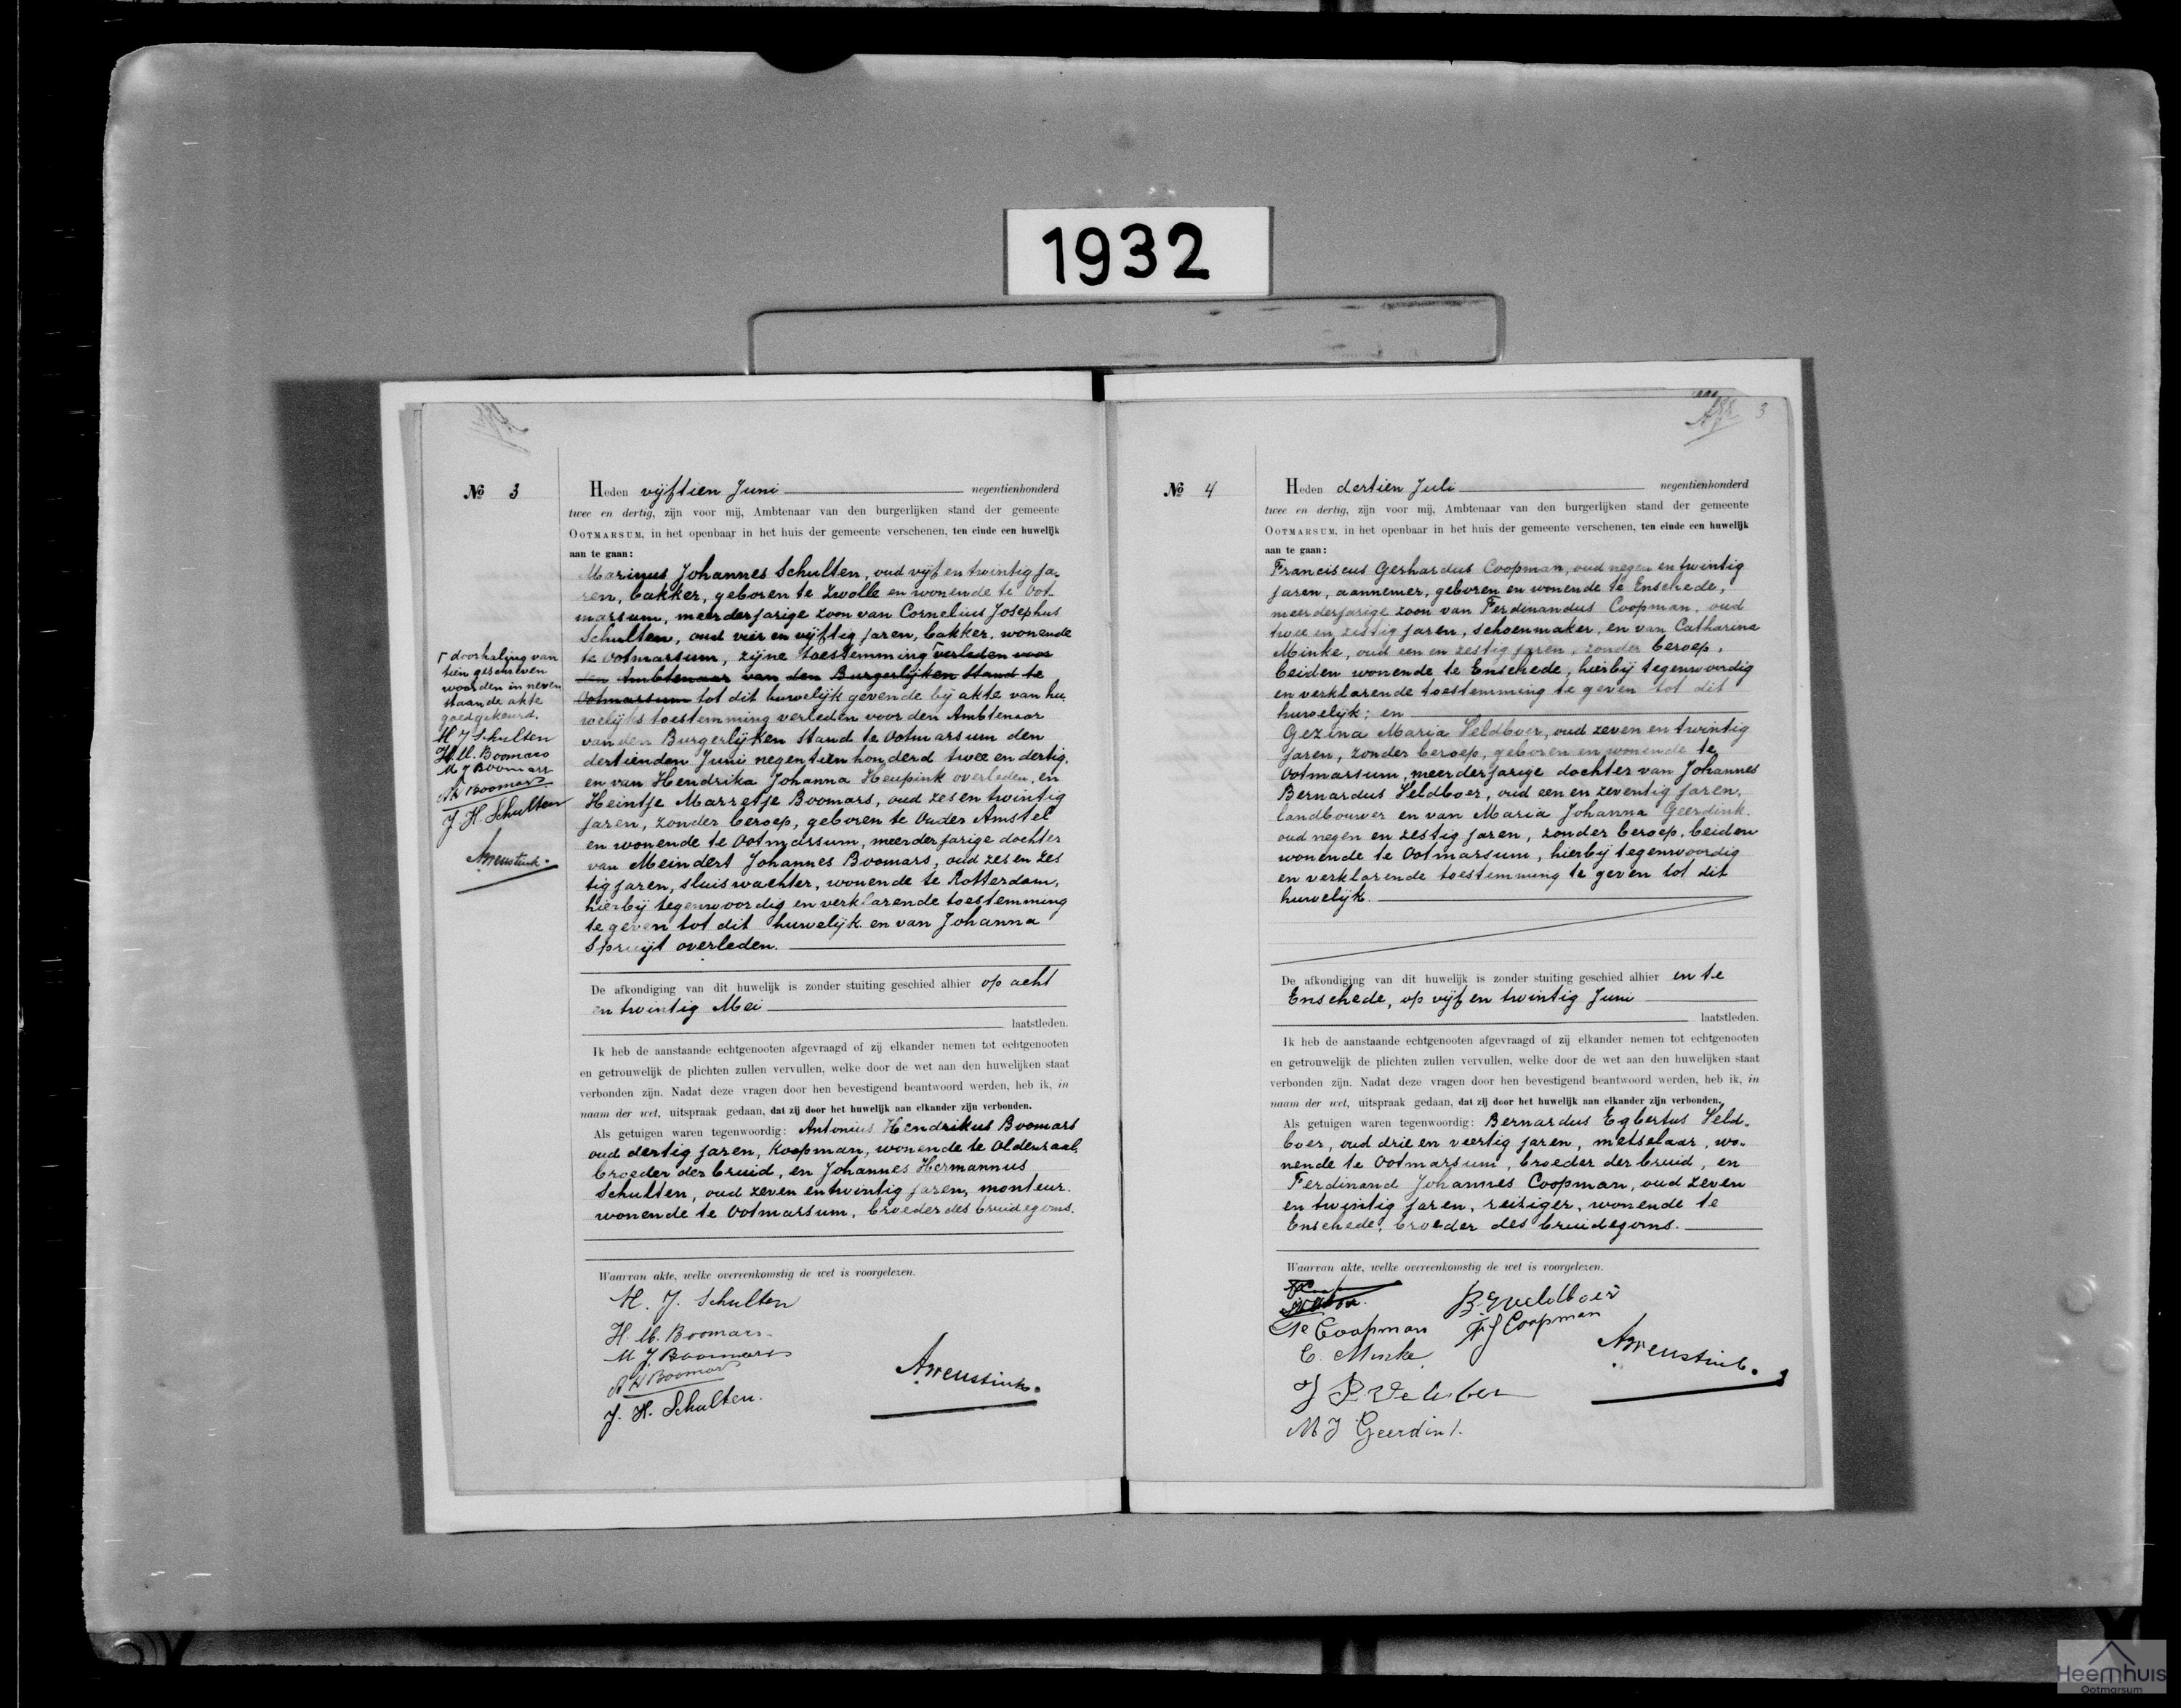 1932
3
№ 3
Heden vijftien Juni negentienhonderd
twee en dertig, zijn voor mij, Ambtenaar van den burgerlijken stand der gemeente
OOTMARSUM, in het openbaar in het huis der gemeente verschenen, ten einde een huwelijk
aan te gaan:
Marinus Johannes Schulten, oud vijf en twintig ja-
ren, bakker, geboren te Zwolle en wonende te Oot-
marsum, meerderjarige zoon van Cornelius Josephus
Schulten, oud vier en vijftig jaren, bakker, wonende
te Ootmarsum, zijne toestemming verleden voor
den Ambtenaar van den Burgerlijken Stand te
Ootmarsum tot dit huwelijk gevende bij akte van hu-
welijks toestemming verleden voor den Ambtenaar
van den Burgerlijken Stand te Ootmarsum den
dertienden Juni negentienhonderd twee en dertig,
en van Hendrika Johanna Heupink overleden, en
Heintje Marretje Boomars, oud zes en twintig
jaren, zonder beroep, geboren te Ouder Amstel
en wonende te Ootmarsum, meerderjarige dochter
van Meindert Johannes Boomars, oud zes en zes
tig jaren, sluiswachter, wonende te Rotterdam,
hierbij tegenwoordig en verklarende toestemming
te geven tot dit huwelijk en van Johanna
Spruijt overleden.
De afkondiging van dit huwelijk is zonder stuiting geschied alhier op acht
en twintig Mei
laatstleden.
Ik heb de aanstaande echtgenooten afgevraagd of zij elkander nemen tot echtgenooten
en getrouwelijk de plichten zullen vervullen, welke door de wet aan den huwelijken staat
verbonden zijn. Nadat deze vragen door hen bevestigend beantwoord werden, heb ik, in
naam der wet, uitspraak gedaan, dat zij door het huwelijk aan elkander zijn verbonden.
Als getuigen waren tegenwoordig: Antonius Hendrikus Boomars
oud dertig jaren, koopman, wonende te Oldenzaal,
broeder der bruid, en Johannes Hermannus
Schulten, oud zeven en twintig jaren, monteur.
wonende te Ootmarsum, broeder des bruidegoms.
Waarvan akte, welke overeenkomstig de wet is voorgelezen.
M. J. Schulten
H. M. Boomars
M J Boomars
A H Boomars
J. H. Schulten.
doorhaling van
tien geschreven
woorden in neven
staande akte
goedgekeurd.
M J Schulten
H. M. Boomars
M J Boomars
A H Boomars
J H Schulten
№ 4
Heden dertien Juli negentienhonderd
twee en dertig, zijn voor mij, Ambtenaar van den burgerlijken stand der gemeente
OOTMARSUM, in het openbaar in het huis der gemeente verschenen, ten einde een huwelijk
aan te gaan:
Franciscus Gerhardus Coopman, oud negen en twintig
jaren, aannemer, geboren en wonende te Enschede,
meerderjarige zoon van Ferdinandus Coopman, oud
twee en zestig jaren, schoenmaker, en van Catharina
Minke, oud een en zestig jaren, zonder beroep,
beiden wonende te Enschede, hierbij tegenwoordig
en verklarende toestemming te geven tot dit
huwelijk; en
Gezina Maria Veldboer, oud zeven en twintig
jaren, zonder beroep, geboren en wonende te
Ootmarsum, meerderjarige dochter van Johannes
Bernardus Veldboer, oud een en zeventig jaren,
landbouwer en van Maria Johanna Geerdink.
oud negen en zestig jaren, zonder beroep, beiden
wonende te Ootmarsum, hierbij tegenwoordig
en verklarende toestemming te geven tot dit
huwelijk.
De afkondiging van dit huwelijk is zonder stuiting geschied alhier en te
Enschede, op vijf en twintig Juni
laatstleden.
Ik heb de aanstaande echtgenooten afgevraagd of zij elkander nemen tot echtgenooten
en getrouwelijk de plichten zullen vervullen, welke door de wet aan den huwelijken staat
verbonden zijn. Nadat deze vragen door hen bevestigend beantwoord werden, heb ik, in
naam der wet, uitspraak gedaan, dat zij door het huwelijk aan elkander zijn verbonden.
Als getuigen waren tegenwoordig: Bernardus Egbertus Veld-
boer, oud drie en veertig jaren, metselaar, wo-
nende te Ootmarsum, broeder der bruid, en
Ferdinand Johannes Coopman, oud zeven
en twintig jaren, reiziger, wonende te
Enschede, broeder des bruidegoms.
Waarvan akte, welke overeenkomstig de wet is voorgelezen.
Coopman
B. E Veldboer
F J Coopman
C. Minke
M J Geerdink
Heemhuis
Ootmarsum